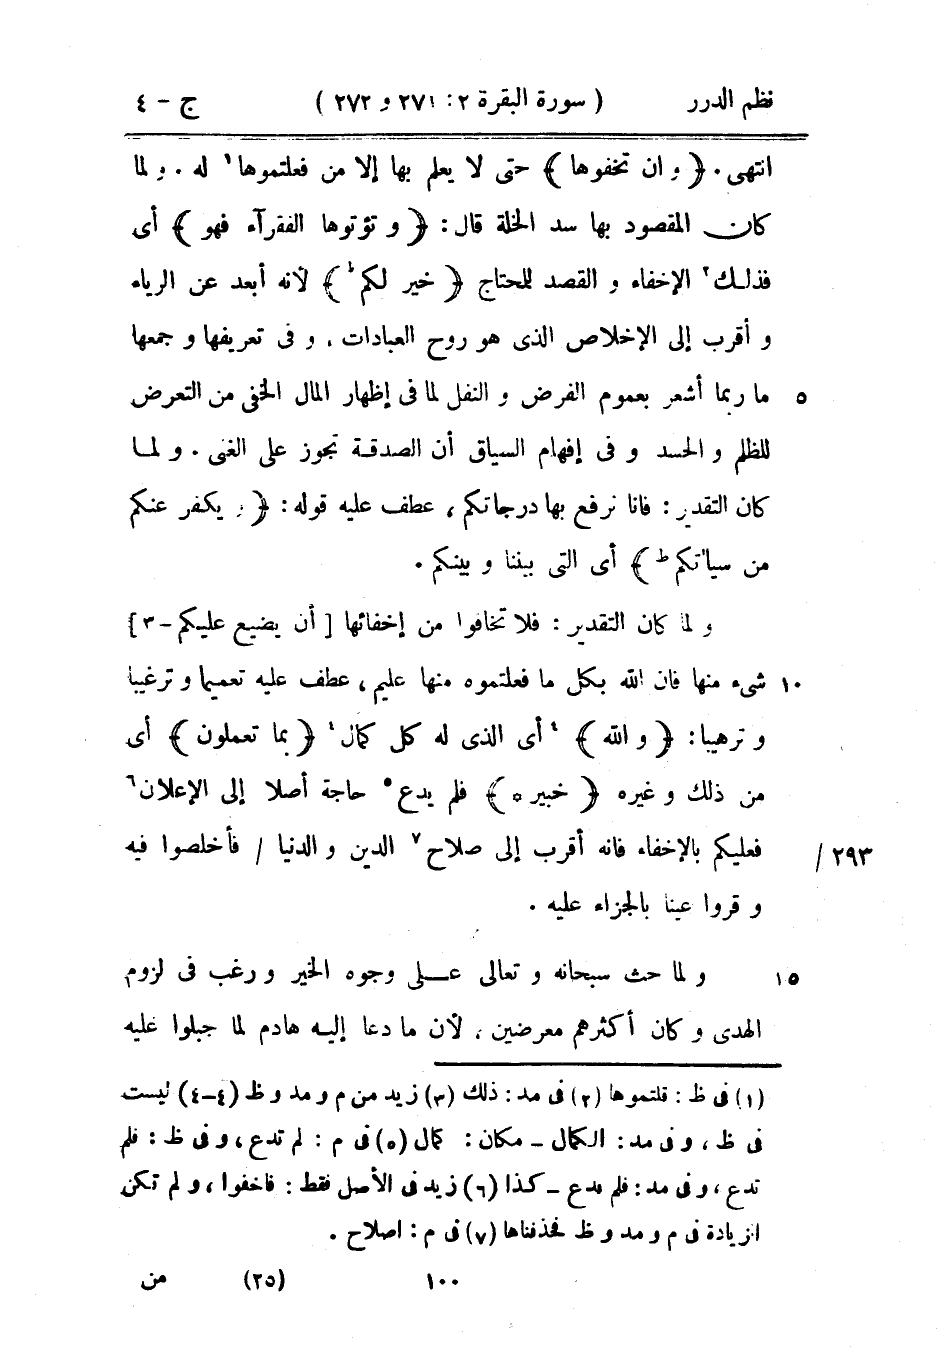 نظم الدرر ( سورة البقرة ٢: ٢٧١ و ٢٧٢ ) ج - ٤
انتهى. ﴿ و ان تخفوها ﴾ حتى لا يعلم بها إلا من فعلتموها١ له . و لما
كان المقصود بها سد الخلة قال: ﴿ و تؤتوها الفقرآء فهو ﴾ أى
فذلك٢ الإخفاء و القصد للحتاج ﴿ خير لكم ط ﴾ لأنه أبعد عن الرياء
و أقرب إلى الإخلاص الذى هو روح العبادات . و فى تعريفها و جمعها
٥ ما ربما أشعر بعموم الفرض و النفل لما فى إظهار المال الخفى من التعرض
للظلم و الحسد و فى إفهام السياق أن الصدقة تجوز على الغنى . و لما
كان التقدير : فانا نرفع بها درجاتكم ، عطف عليه قوله: ﴿ و يكفر عنكم
من سيأتكم ط ﴾ أى التى بيننا و بينكم .
و لما كان التقدير : فلا تخافوا من إخفائها [ أن يضيع عليكم - ٣ ]
١٠ شىء منها فان الله بكل ما فعلتموه منها عليم ، عطف عليه تعميما و ترغيبا
و ترهيبا: ﴿ و الله ﴾ ٤أى الذى له كل كمال٤ ﴿ بما تعملون ﴾ أى
من ذلك و غيره ﴿ خبير ه ﴾ فلم يدع٥ حاجة أصلا إلى الإعلان٦
فعليكم بالإخفاء فانه أقرب إلى صلاح٧ الدين و الدنيا / فأخلصوا فيه / ٢٩٣
و قروا عينا بالجزاء عليه .
١٥ و لما حث سبحانه و تعالى على وجوه الخير و رغب فى لزوم
الهدى و كان أكثرهم معرضين ، لأن ما دعا إليه هادم لما جبلوا عليه
(١) فى ظ : قلتموها (٢) فى مد : ذلك (٣) زيد من م و مد و ظ (٤-٤) ليست
فى ظ ، و فى مد : الكمال - مكان : كمال (٥) فى م : لم تدع ، و فى ظ : فلم
تدع ، و فى مد : فلم يدع - كذا (٦) زيد فى الأصل فقط : فاخفوا ، و لم تكن
الزيادة فى م و مد و ظ فحذفناها (٧) فى م : اصلاح .
١٠٠ (٢٥) من